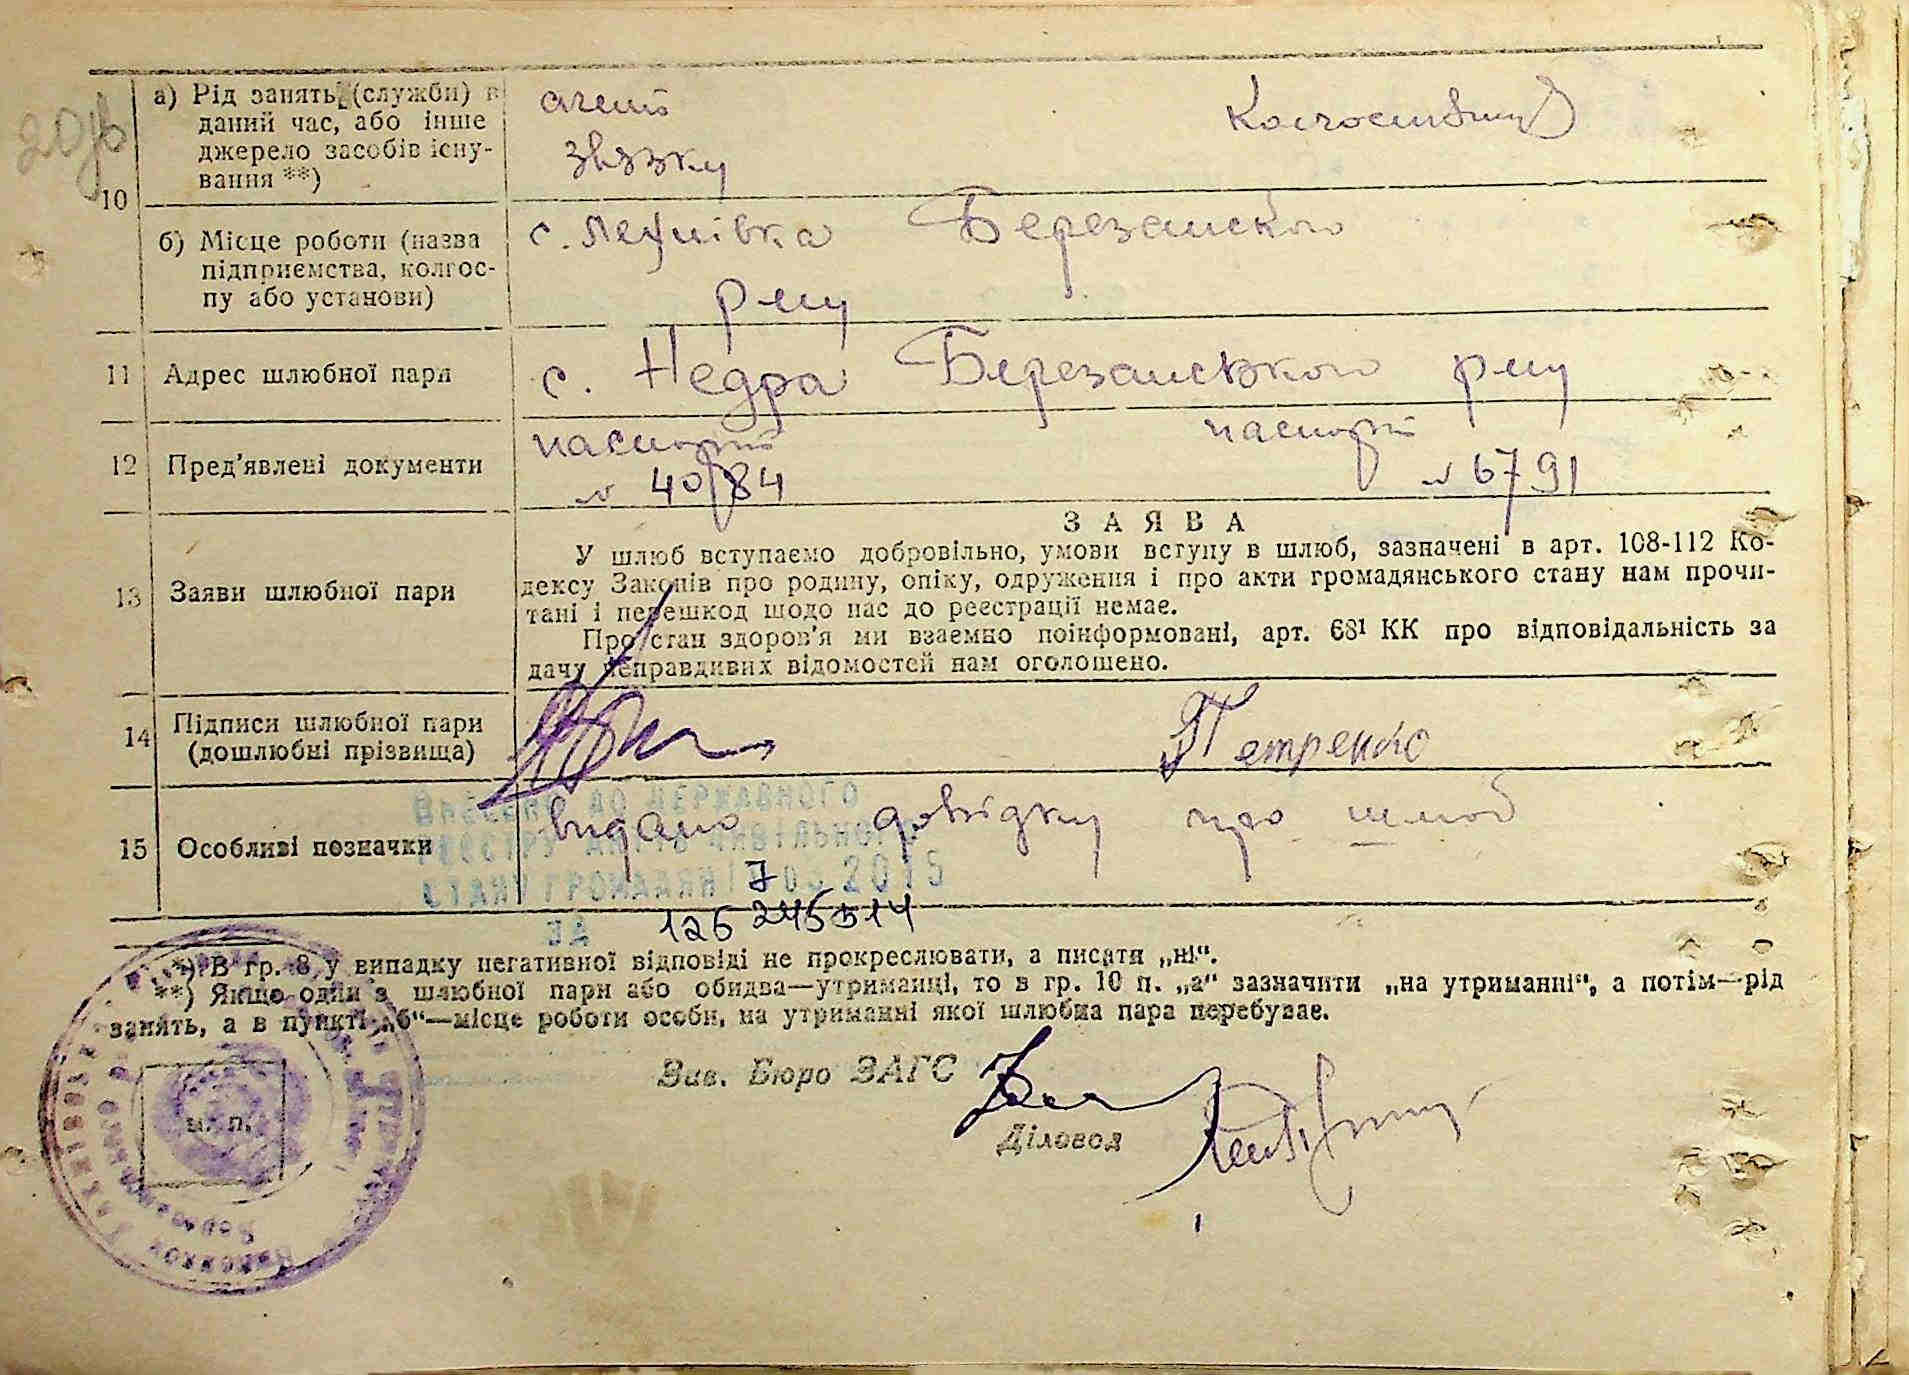 20зв
10
а) Рід занять (служби) в
даний час, або інше
джерело засобів існу-
вання **)
агент
звязку
Колгоспниця
б) Місце роботи (назва
підприємства, колгос-
пу або установи)
с. Лехнівка Березанського
р-ну
11 Адрес шлюбної пари
с. Недра Березанського р-ну
12 Пред'явлені документи
паспорт
№ 40784
паспорт
№ 6791
13 Заяви шлюбної пари
ЗАЯВА
У шлюб вступаємо добровільно, умови вступу в шлюб, зазначені в арт. 108-112 Ко-
дексу Законів про родину, опіку, одруження і про акти громадянського стану нам прочи-
тані і перешкод щодо нас до реєстрації немає.
Про стан здоров'я ми взаємно поінформовані, арт. 68¹ КК про відповідальність за
дачу неправдивих відомостей нам оголошено.
14 Підписи шлюбної пари
(дошлюбні прізвища)
Петренко
15 Особливі позначки
видано довідку про шлюб
ВНЕСЕНО ДО ДЕРЖАВНОГО
РЕЄСТРУ АКТІВ ЦИВІЛЬНОГО
СТАНУ ГРОМАДЯН
2015
ЗА
*) В гр. 8 у випадку негативної відповіді не прокреслювати, а писати „ні“.
**) Якщо один з шлюбної пари або обидва—утриманці, то в гр. 10 п. „а“ зазначити „на утриманні“, а потім—рід
занять, а в пункті „б“—місце роботи особи, на утриманні якої шлюбна пара перебуває.
Зав. Бюро ЗАГС
Діловод
м. п.